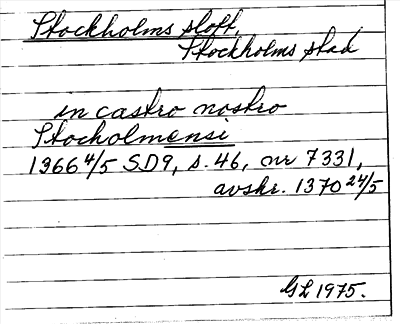 Stockholms slott,
Stockholms stad
in castro nostro
Stocholmensi
1366 4/5 SD9, s. 46, nr 7331,
avskr. 1370 24/5
GL 1975.